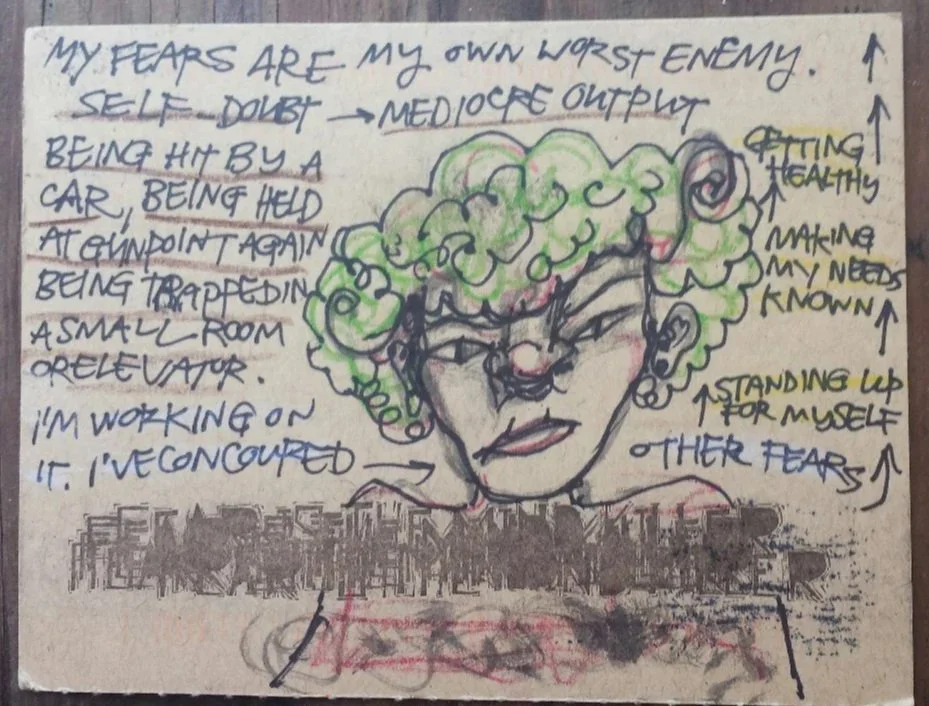 MY FEARS ARE MY OWN WORST ENEMY.
SELF-DOUBT → MEDIOCRE OUTPUT
BEING HIT BY A
CAR, BEING HELD
AT GUNPOINT AGAIN
BEING TRAPPED IN
A SMALL ROOM
OR ELEVATOR.
I'M WORKING ON
IT. I'VE CONCOURED →
OTHER FEARS
STANDING UP
FOR MYSELF
MAKING
MY NEEDS
KNOWN
GETTING
HEALTHY
FEAR IS THE MIND KILLER